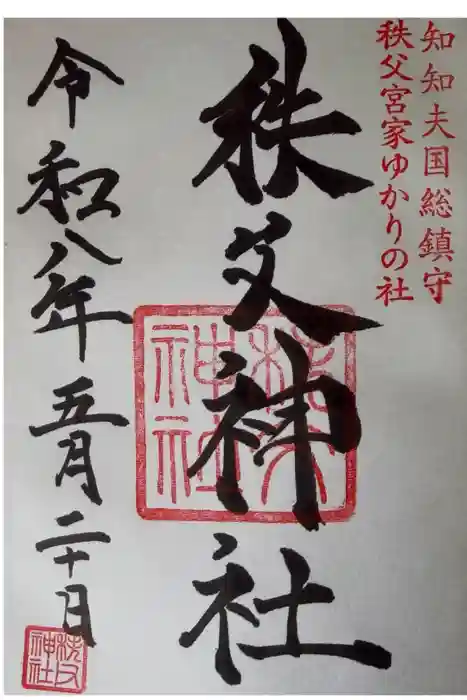 知知夫国総鎮守
秩父宮家ゆかりの社
秩父神社
令和八年五月二十日
秩父神社
秩父神社